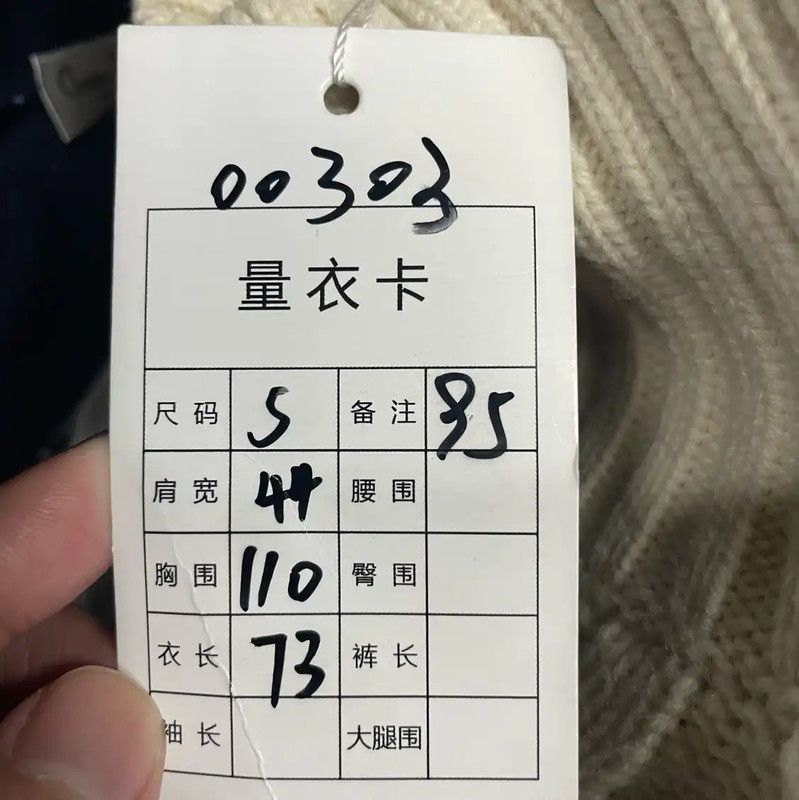 00303
量衣卡
尺码 S 备注 95
肩宽 44 腰围
胸围 110 臀围
衣长 73 裤长
袖长 大腿围